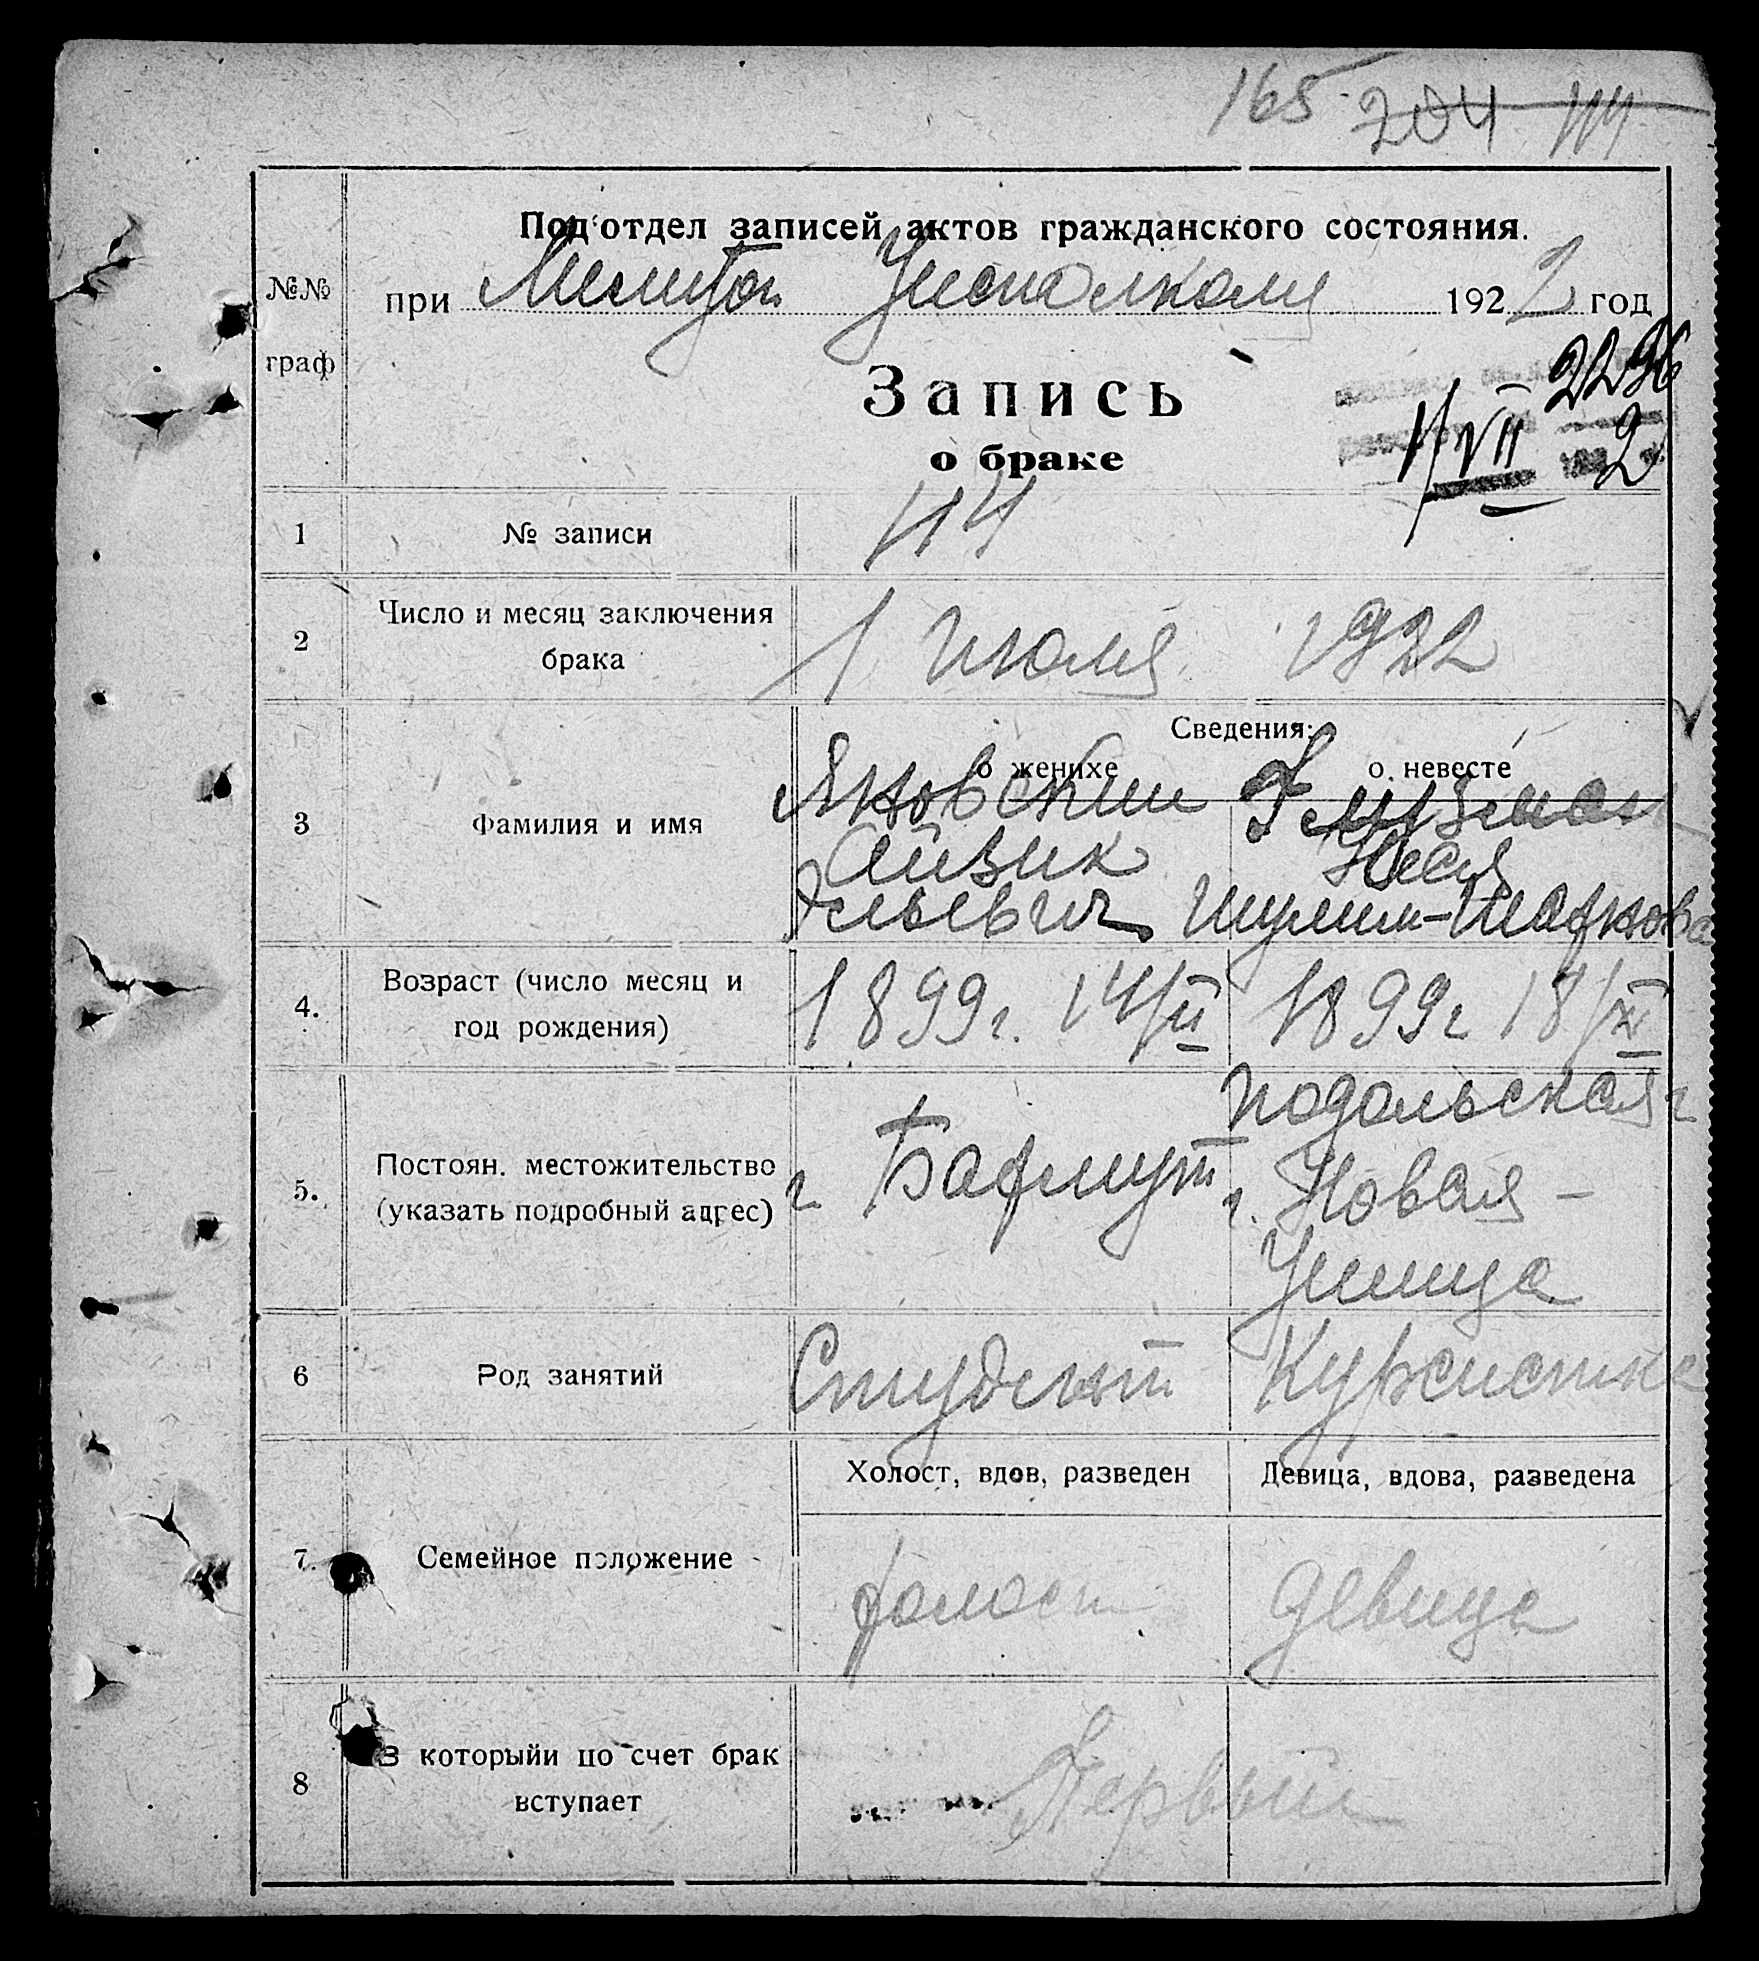 165 204 144
Под'отдел записей актов гражданского состояния.
№№
граф
при Мелитоп Уисполкоме 1922 год
Запись
о браке
2236
1/VII 2
1 № записи 144
2 Число и месяц заключения
брака
1 июля 1922
Сведения:
о женихе о невесте
3 Фамилия и имя
Яновский
Айзик
Ельевич
Шулим-Шафнова
4. Возраст (число месяц и
год рождения)
1899г. 14/II 1899г 18/XI
5. Постоян. местожительство
(указать подробный адрес)
г. Бахмут
Подольская г
г. Новая -
Ушица
6 Род занятий Студент Курсистка
Холост, вдов, разведен Девица, вдова, разведена
7. Семейное положение холост девица
8 В которыйи по счет брак
вступает
Первый